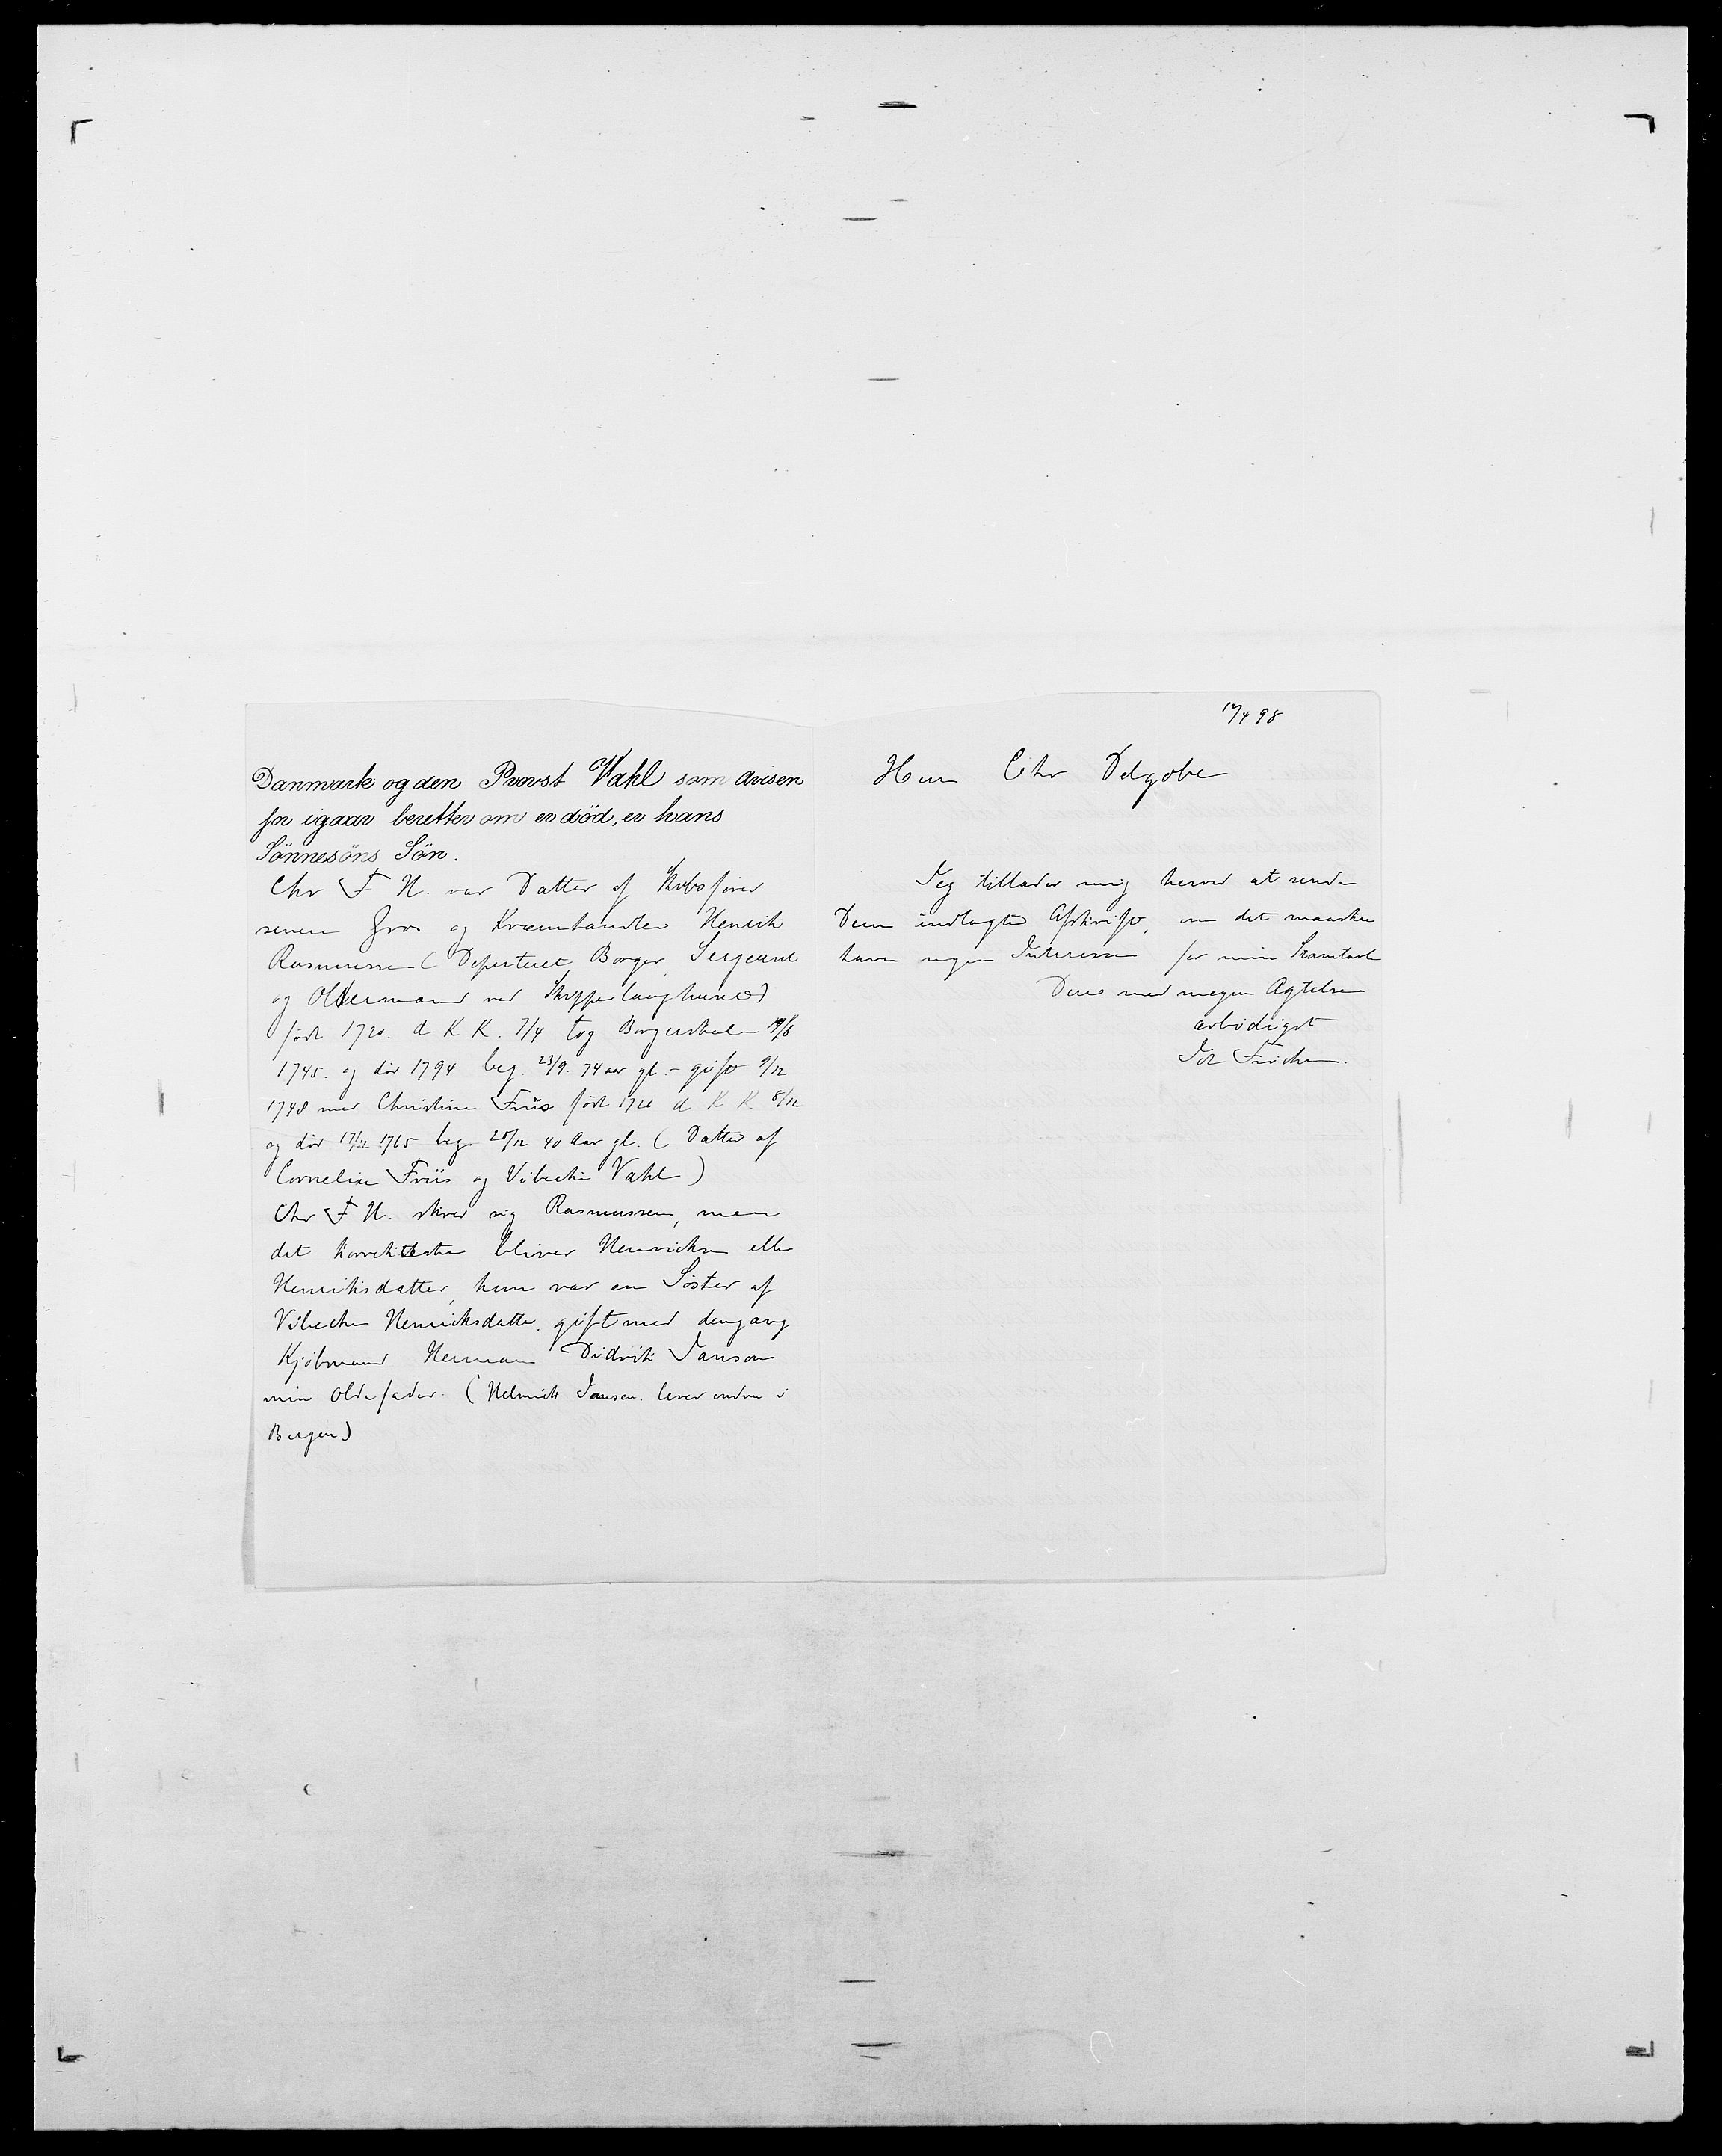 Danmark og den Provst Vahl som avisen
for igaar beretter om er död, er hans
Sönnesöns Sön.
Chr F H. var Datter af Skibsfører
senere Gros og Kræmhandler Henrik
Rasmussen (Deputeret Borger, Sergeant
og Oldermand ved Skipperlaughuset)
født 1720. d K K. 7/4 tog Borgerskab 19/8
1745. og död 1794 beg. 23/9. 74 aar gl. - gift 9/12
1748 med Christine Friis født 1726 d K K. 8/12
og död 17/12 1765 beg. 28/12 40 Aar gl. (Datter af
Cornelius Friis og Vibeche Vahl)
Chr F H. skrev sig Rasmussen, men
det korrekteste bliver Henricksen eller
Henriksdatter, hun var en Søster af
Vibeche Henricksdatter. gift med dengang
Kjöbmand Herman Didrik Janson
min Oldefader. (Helmich Janson. lever endnu i
Bergen)
17/4 98
Herr Chr Delgobe
Jeg tillader mig herved at sende
Dem indlagte Afskrift, om det maaske
have nogen Interesse for min Stamtavle
Deres med megen Agtelse
ærbödigst